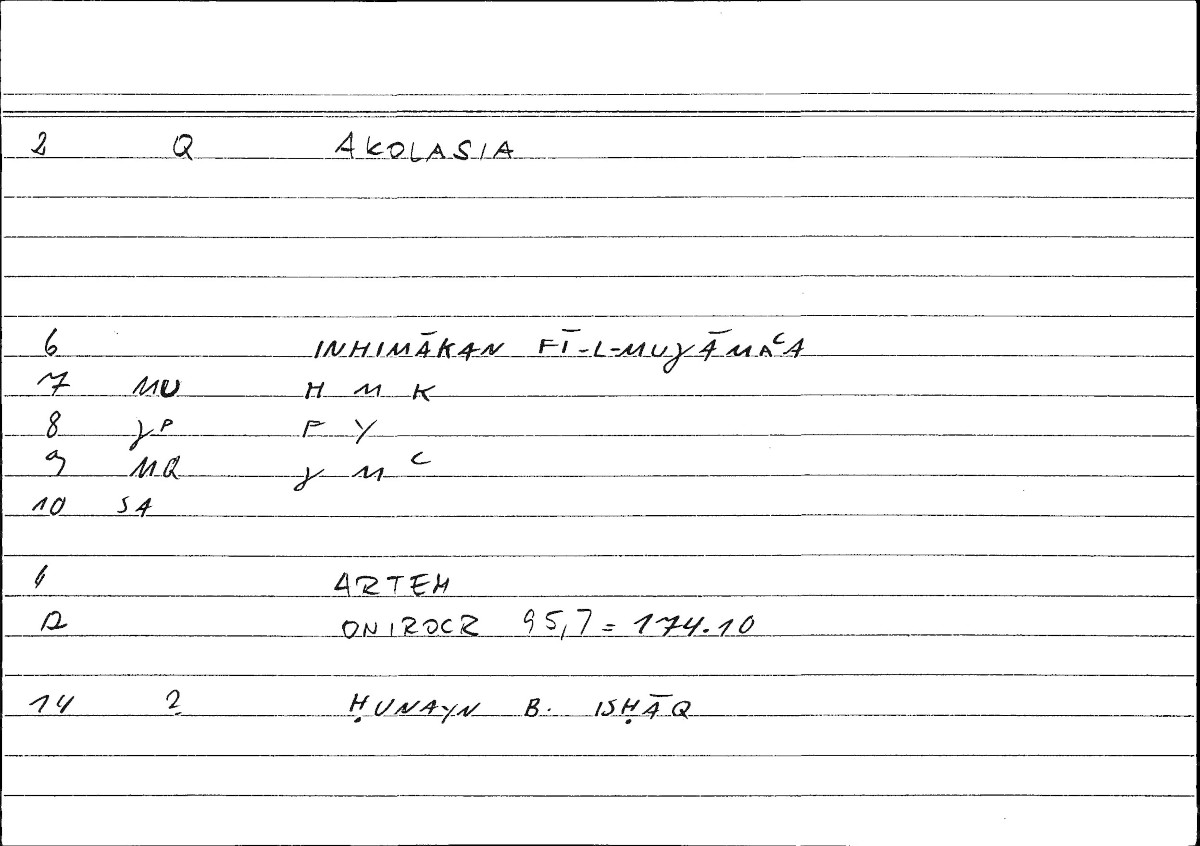 2 Q AKOLASIA
6 INHIMĀKAN FĪ-L-MUǧĀMAʿA
7 MU H M K
8 ǧP F Y
9 MQ ǧ M ʿ
10 SA
11 ARTEM
12 ONIROCR 95,7 = 174.10
14 2 ḤUNAYN B. ISḤĀQ